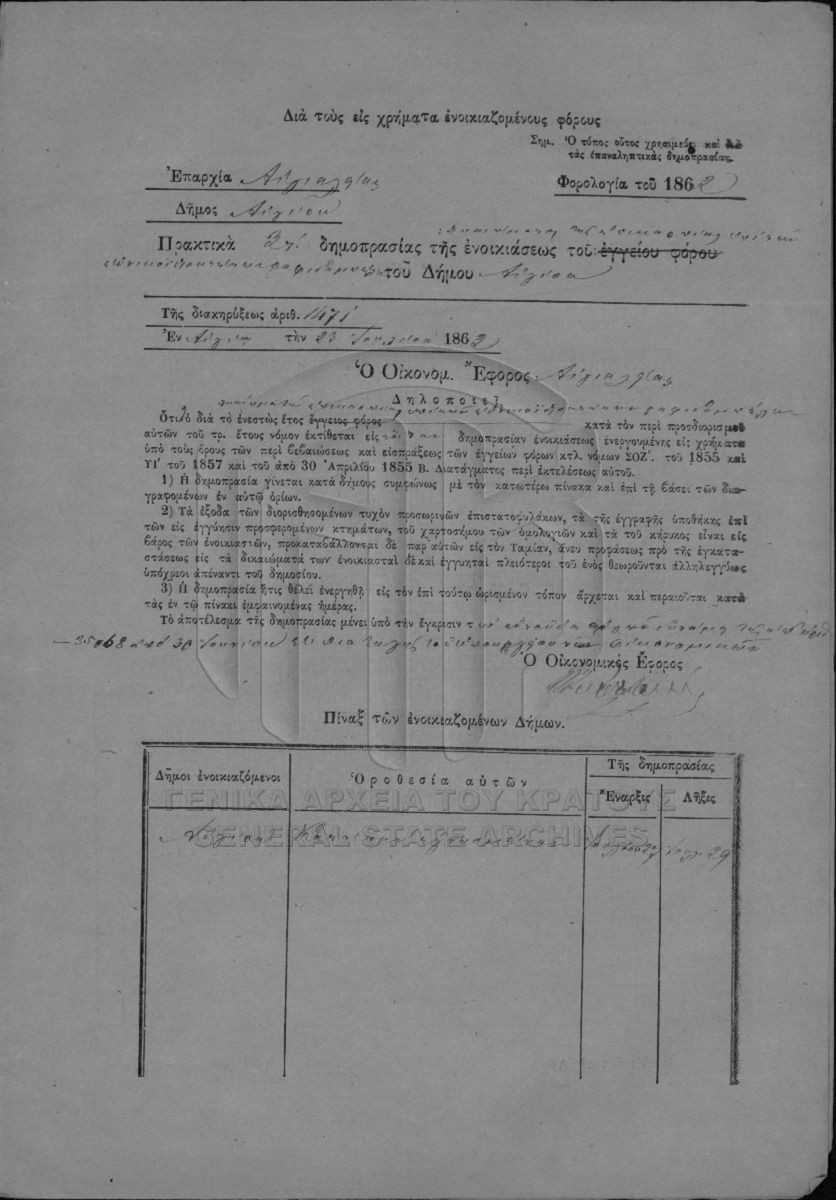 Διὰ τοὺς εἰς χρήματα ἐνοικιαζομένους φόρους
Σημ. Ὁ τύπος οὗτος χρησιμεύει καὶ διὰ
τὰς ἐπαναληπτικὰς δημοπρασίας.
Ἐπαρχία Αἰγιαλείας
Φορολογία τοῦ 1862
Δῆμος Αἰγίου
Πρακτικὰ δημοπρασίας τῆς ἐνοικιάσεως τοῦ ἐγγείου φόρου
τοῦ Δήμου Αἰγίου
Τῆς διακηρύξεως ἀριθ. 1471
Ἐν Αἰγίῳ τὴν 23 Ἰουλίου 1862
Ὁ Οἰκονομ. Ἔφορος Αἰγιαλείας
Δηλοποιεῖ
Ὅτι διὰ τὸ ἐνεστὼς ἔτος ἔγγειος φόρος κατὰ τὸν περὶ προσδιορισμοῦ
αὐτῶν τοῦ τρ. ἔτους νόμον ἐκτίθεται εἰς δημοπρασίαν ἐνοικιάσεως ἐνεργουμένης εἰς χρήματα
ὑπὸ τοὺς ὅρους τῶν περὶ βεβαιώσεως καὶ εἰσπράξεως τῶν ἐγγείων φόρων κτλ. νόμων ΣΟΖʹ. τοῦ 1855 καὶ
ΥΓʹ τοῦ 1857 καὶ τοῦ ἀπὸ 30 Ἀπριλίου 1855 Β. Διατάγματος περὶ ἐκτελέσεως αὐτοῦ.
1) Ἡ δημοπρασία γίνεται κατὰ δήμους συμφώνως μὲ τὸν κατωτέρω πίνακα καὶ ἐπὶ τῇ βάσει τῶν δια-
γραφομένων ἐν αὐτῷ ὁρίων.
2) Τὰ ἔξοδα τῶν διορισθησομένων τυχὸν προσωρινῶν ἐπιστατοφυλάκων, τὰ τῆς ἐγγραφῆς ὑποθήκης ἐπὶ
τῶν εἰς ἐγγύησιν προσφερομένων κτημάτων, τοῦ χαρτοσήμου τῶν ὁμολογιῶν καὶ τὰ τοῦ κήρυκος εἶναι εἰς
βάρος τῶν ἐνοικιαστῶν, προκαταβάλλονται δὲ παρ' αὐτῶν εἰς τὸν Ταμίαν, ἄνευ προφάσεως πρὸ τῆς ἐγκατα-
στάσεως εἰς τὰ δικαιώματά των ἐνοικιασταὶ δὲ καὶ ἐγγυηταὶ πλειότεροι τοῦ ἑνὸς θεωροῦνται ἀλληλεγγύως
ὑπόχρεοι ἀπέναντι τοῦ δημοσίου.
3) Ἡ δημοπρασία ἥτις θέλει ἐνεργηθῆ εἰς τὸν ἐπὶ τούτῳ ὡρισμένον τόπον ἄρχεται καὶ περαιοῦται κατὰ
τὰς ἐν τῷ πίνακι ἐμφαινομένας ἡμέρας.
Τὸ ἀποτέλεσμα τῆς δημοπρασίας μένει ὑπὸ τὴν ἔγκρισιν
Οἰκονομικῶν
Ὁ Οἰκονομικὸς Ἔφορος
Πίναξ τῶν ἐνοικιαζομένων Δήμων.
Δῆμοι ἐνοικιαζόμενοι Ὁροθεσία αὐτῶν Τῆς δημοπρασίας
Ἔναρξις Λῆξες
Αἰγίου Ἰουλ. 29
ΓΕΝΙΚΑ ΑΡΧΕΙΑ ΤΟΥ ΚΡΑΤΟΥΣ
GENERAL STATE ARCHIVES